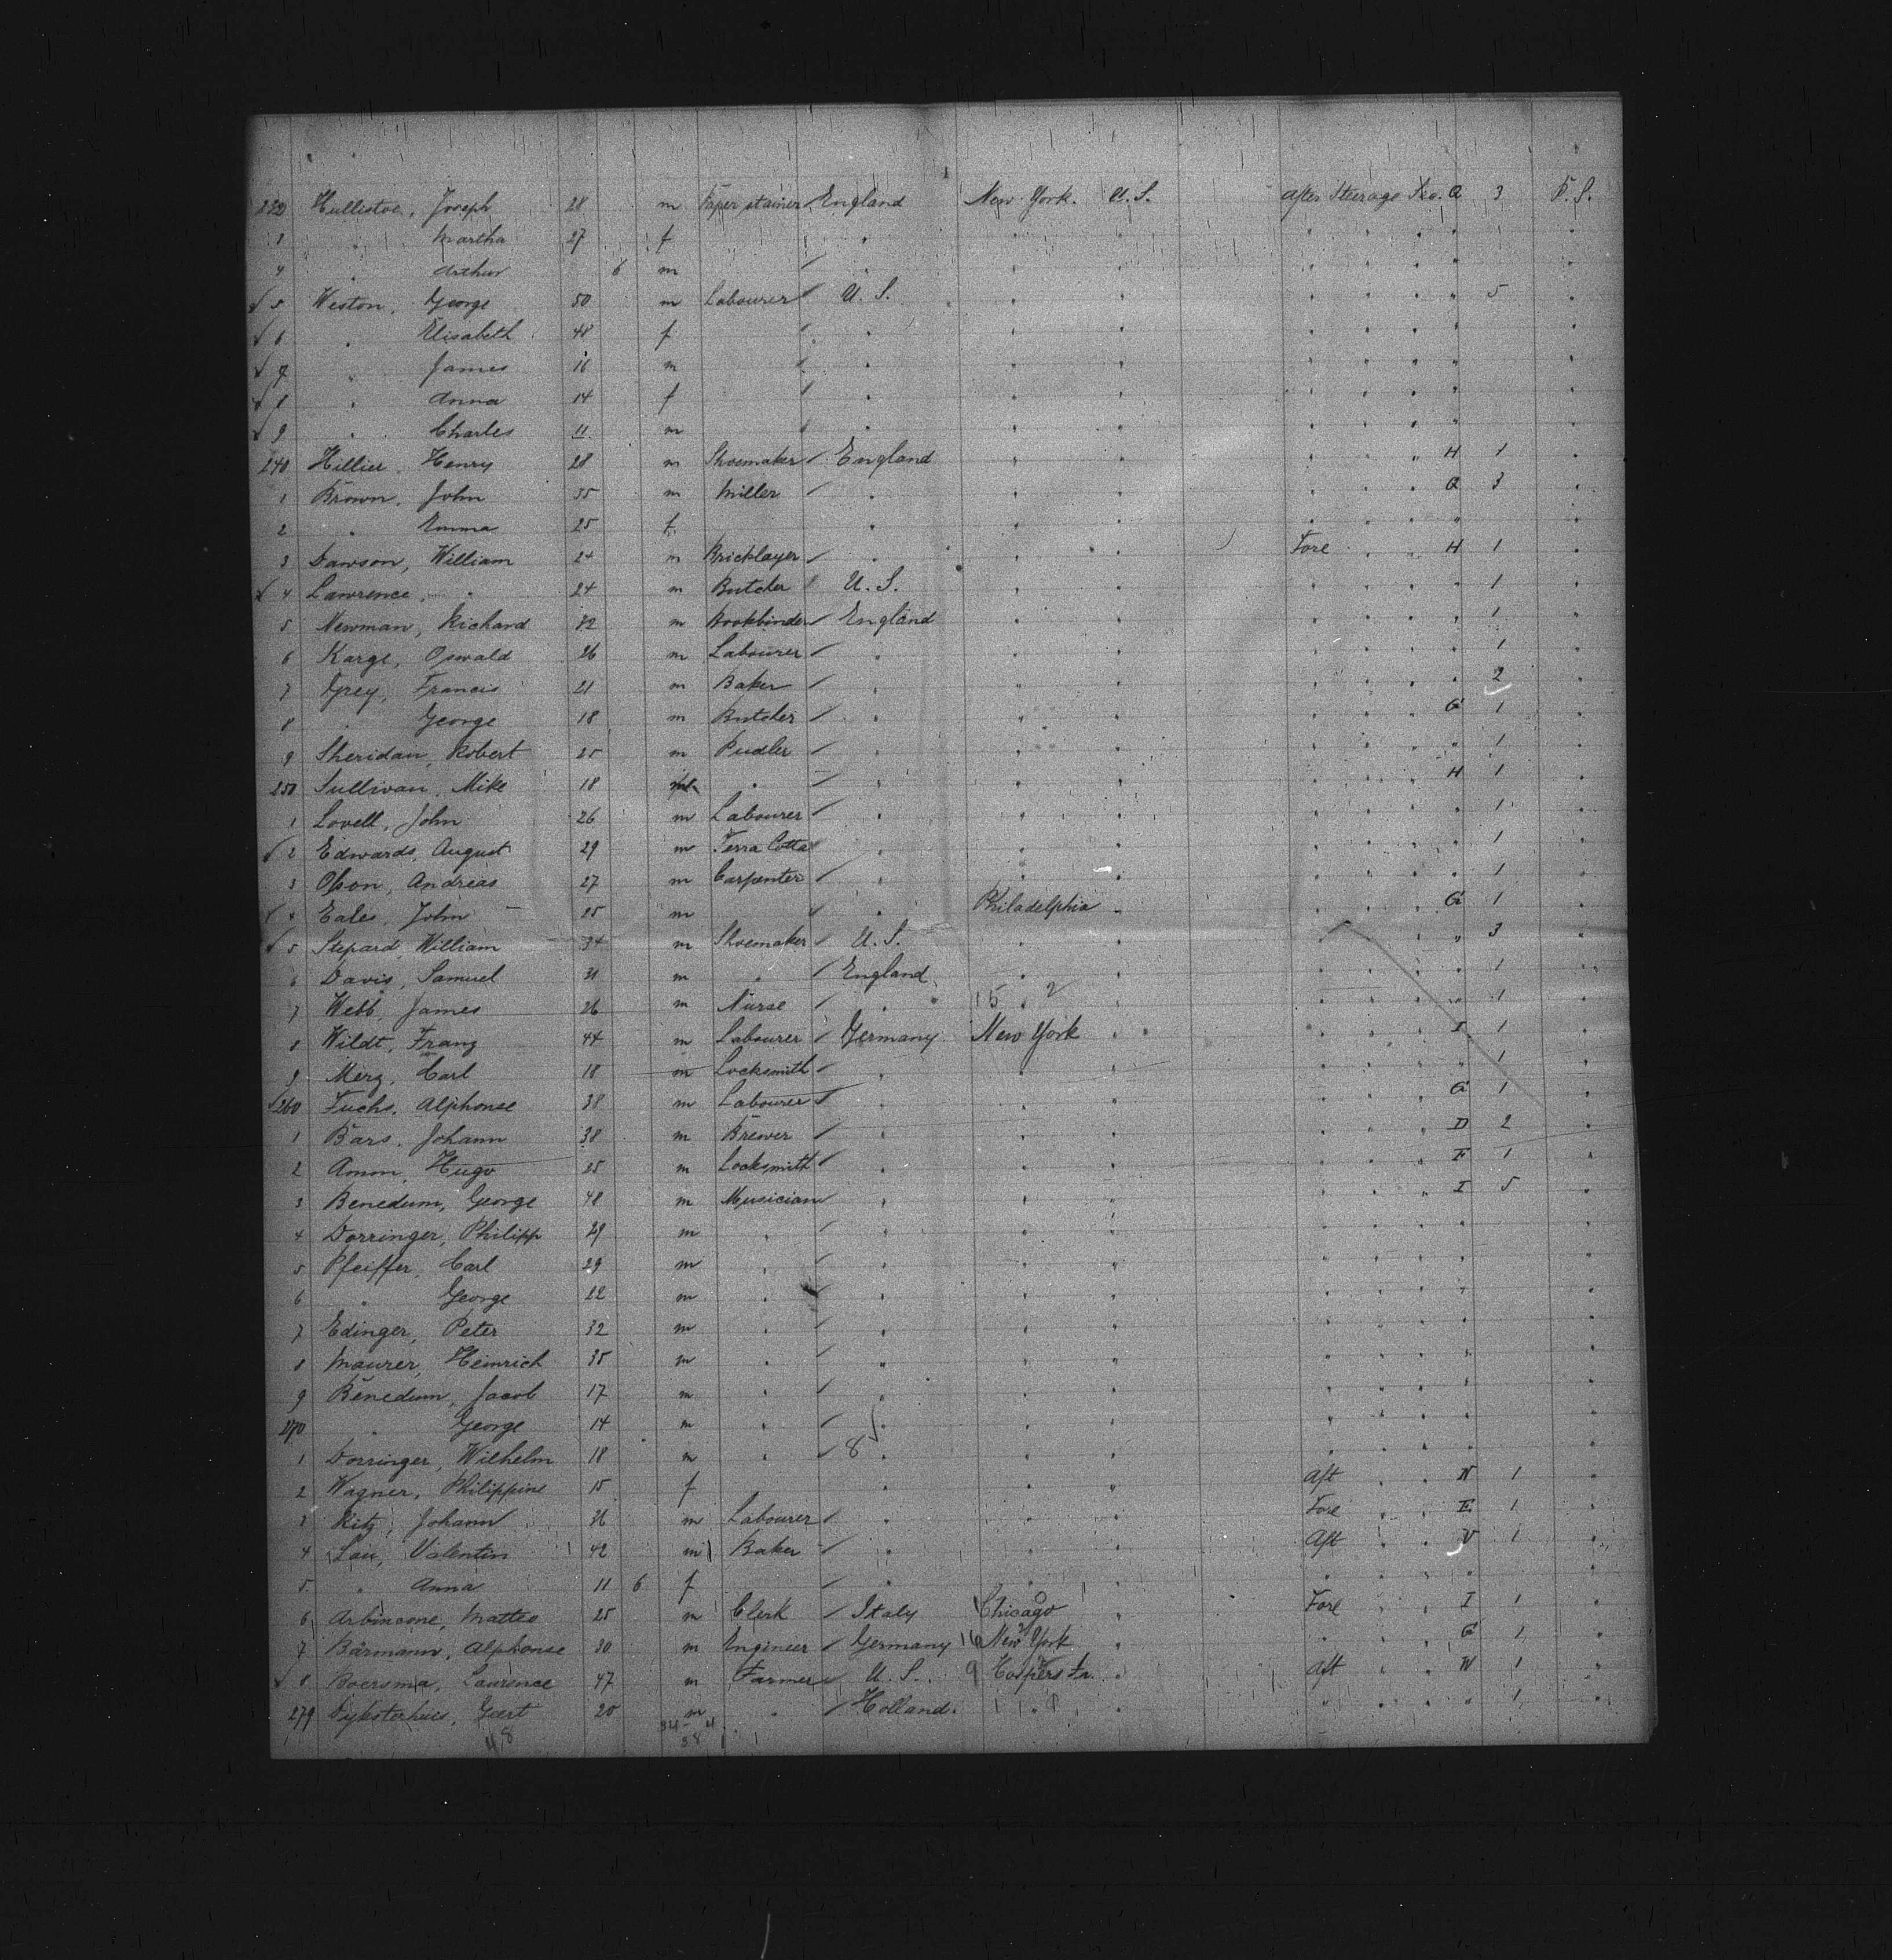 232 Hullistoe, Joseph 28 m Paper stainer England New York. U. S. After Steerage Sec. Q 3 P. S.
3 " Martha 27 f " " " " " " " "
4 " Arthur 6 m " " " " " " " "
5 Weston, George 50 m Labourer U. S. " " " " " " 5 "
6 " Elisabeth 48 f " " " " " " " "
7 " James 16 m " " " " " " " "
8 " Anna 14 f " " " " " " " "
9 " Charles 11 m " " " " " " " "
240 Hillier, Henry 28 m Shoemaker England " " " " " H 1 "
1 Brown, John 35 m Miller " " " " " " Q 3 "
2 " Emma 25 f " " " " " " " "
3 Dawson, William 24 m Bricklayer " " " Fore " " H 1 "
4 Lawrence, " 24 m Butcher U. S. " " " " " " 1 "
5 Newman, Richard 32 m Bookbinder England " " " " " " 1 "
6 Karge, Oswald 26 m Labourer " " " " " " " 1 "
7 Grey, Francis 21 m Baker " " " " " " " 2 "
8 " George 18 m Butcher " " " " " " G 1 "
9 Sheridan, Robert 25 m Pudler " " " " " " " 1 "
250 Sullivan, Mike 18 m " " " " " " " H 1 "
1 Lovell, John 26 m Labourer " " " " " " " 1 "
2 Edwards, August 29 m Terra Cotta " " " " " " " 1 "
3 Olson, Andreas 27 m Carpenter " " " " " " " 1 "
4 Eales, John 25 m " Philadelphia " " " " G 1 "
5 Stepard, William 34 m Shoemaker U. S. " " " " " " 3 "
6 Davis, Samuel 31 m " England " " " " " " 1 "
7 Webb, James 26 m Nurse " 15 " 2 " " " " " 1 "
8 Wildt, Franz 44 m Labourer Germany New York " " " " I 1 "
9 Merz, Carl 18 m Locksmith " " " " " " " 1 "
260 Fuchs, Alphonse 38 m Labourer " " " " " " G 1 "
1 Bars, Johann 38 m Brewer " " " " " " D 2 "
2 Amon, Hugo 25 m Locksmith " " " " " " F 1 "
3 Benedum, George 48 m Musician " " " " " " I 5 "
4 Dorringer, Philipp 29 m " " " " " " " "
5 Pfeiffer, Carl 29 m " " " " " " " " "
6 " George 22 m " " " " " " " " "
7 Edinger, Peter 32 m " " " " " " " " "
8 Maurer, Heinrich 35 m " " " " " " " " "
9 Benedum, Jacob 17 m " " " " " " " " "
270 " George 14 m " " " " " " " " "
1 Dorringer, Wilhelm 18 m " 8 " " " " " " " "
2 Wagner, Philippine 15 f " " " Aft " " N 1 "
3 Ritz, Johann 36 m Labourer " " " Fore " " E 1 "
4 Lau, Valentin 42 m Baker " " " Aft " " V 1 "
5 " Anna 11 6 f " " " " " " " "
6 Arbincone, Matteo 25 m Clerk Italy Chicago " Fore " " I 1 "
7 Bärmann, Alphonse 30 m Engineer Germany 16 New York " " " " G 1 "
8 Boersma, Laurence 47 m Farmer U. S. 9 Hospers Ia. " Aft " " W 1 "
279 Dyksterhuis, Geert 20 m " Holland. " " " " " " 1 "
48 34 - 4
38